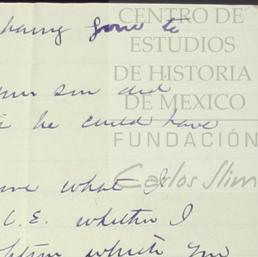 having gone to
CENTRO DE
ESTUDIOS
DE HISTORIA
DE MEXICO
FUNDACIÓN
Carlos Slim
your son did
he could have
what I
C.E. whether I
which you